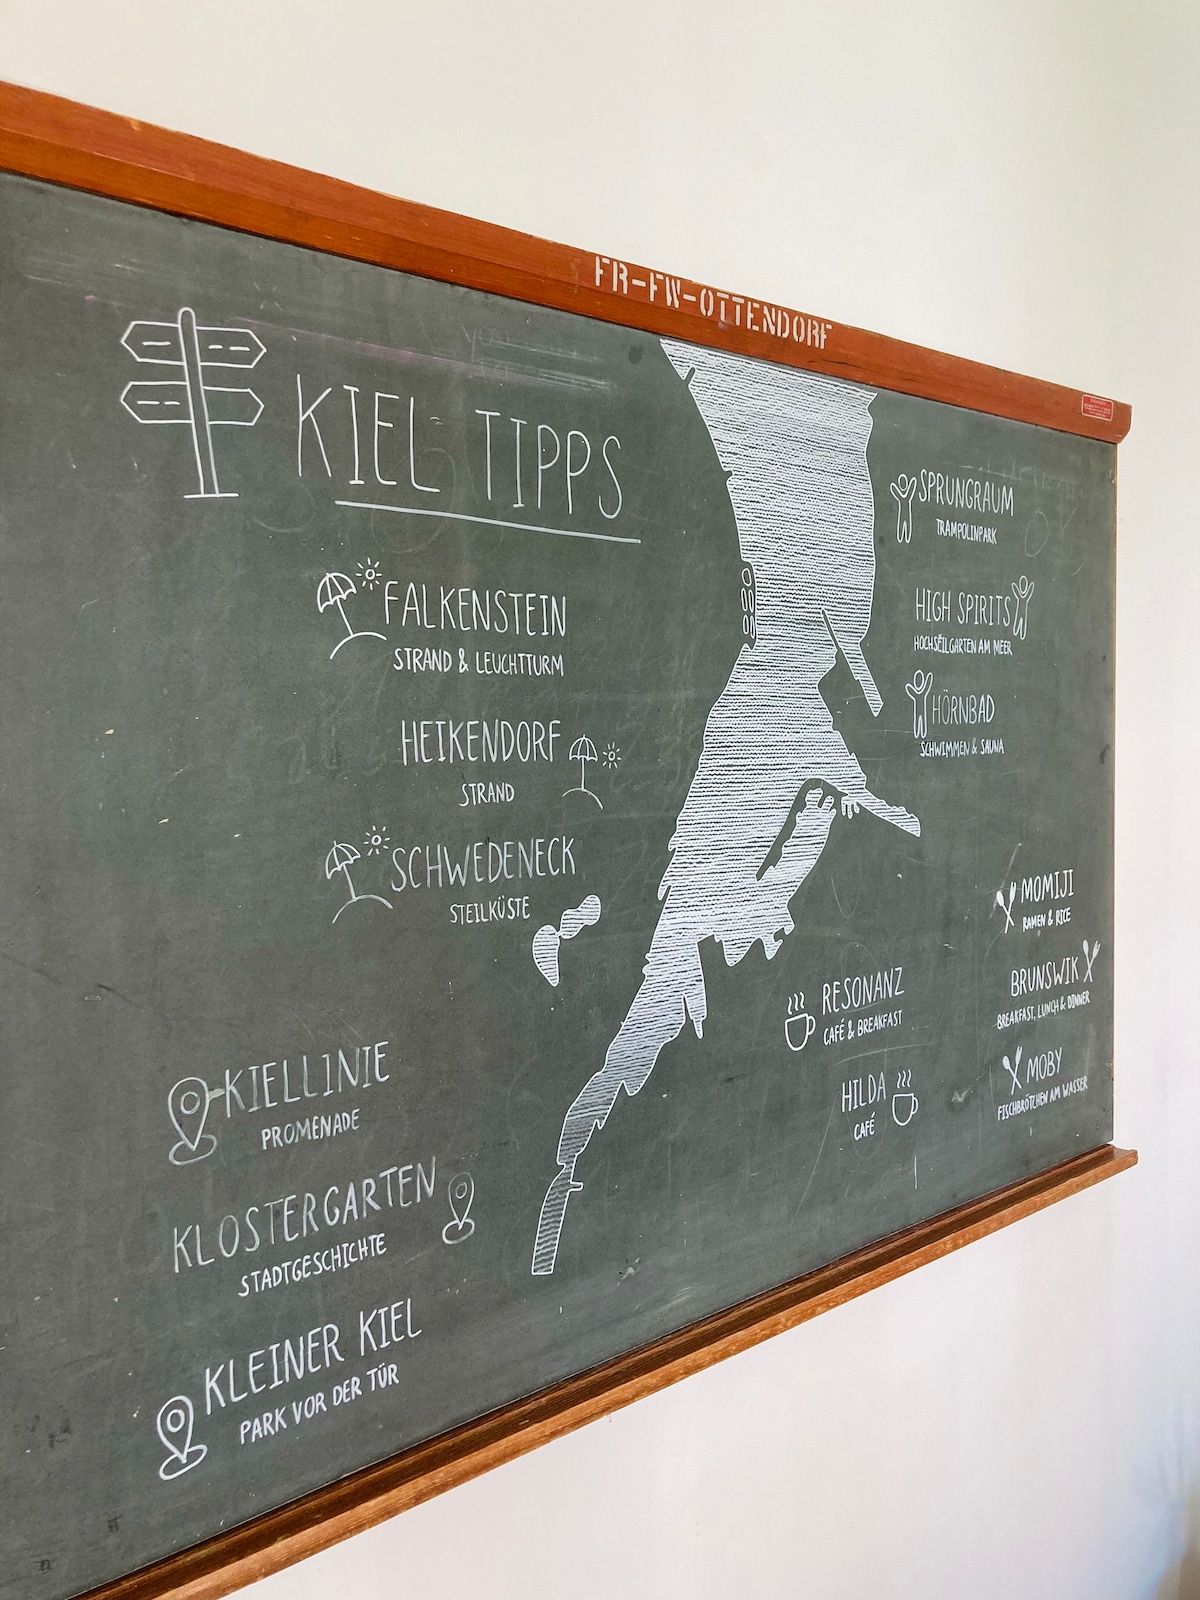 FR-FW-OTTENDORF
KIEL TIPPS
FALKENSTEIN
STRAND & LEUCHTTURM
HEIKENDORF
STRAND
SCHWEDENECK
STEILKÜSTE
KIELLINIE
PROMENADE
KLOSTERGARTEN
STADTGESCHICHTE
KLEINER KIEL
PARK VOR DER TÜR
SPRUNGRAUM
TRAMPOLINPARK
HIGH SPIRITS
HOCHSEILGARTEN AM MEER
HÖRNBAD
SCHWIMMEN & SAUNA
RESONANZ
CAFÉ & BREAKFAST
HILDA
CAFÉ
MOMIJI
RAMEN & RICE
BRUNSWIK
BREAKFAST, LUNCH & DINNER
MOBY
FISCHBRÖTCHEN AM WASSER